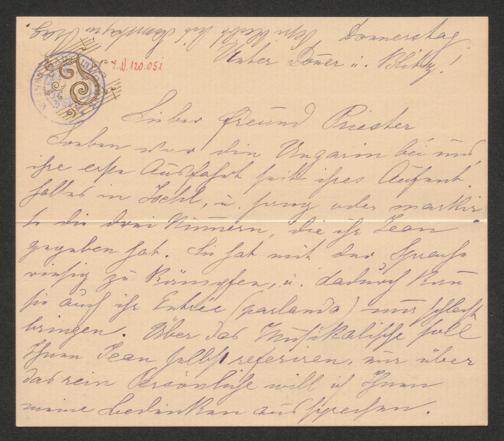 Donnerstag.
Unter Donner u. Blitz!
I.N. 120.051
Lieber Freund Priester
Soeben war die Ungarin bei uns,
ihre erste Ausfahrt seit ihres Aufent-
haltes in Ischl, u. sang oder markir-
te die drei Nummern, die ihr Jean
gegeben hat. Sie hat mit der Sprache
riesig zu kämpfen, u. dadurch kann
sie auch ihr Entrée (parlando) nur schlecht
bringen. Über das Musikalische soll
Ihnen Jean selbst referieren, nur über
das rein Persönliche will ich Ihnen
meine Gedanken aussprechen.